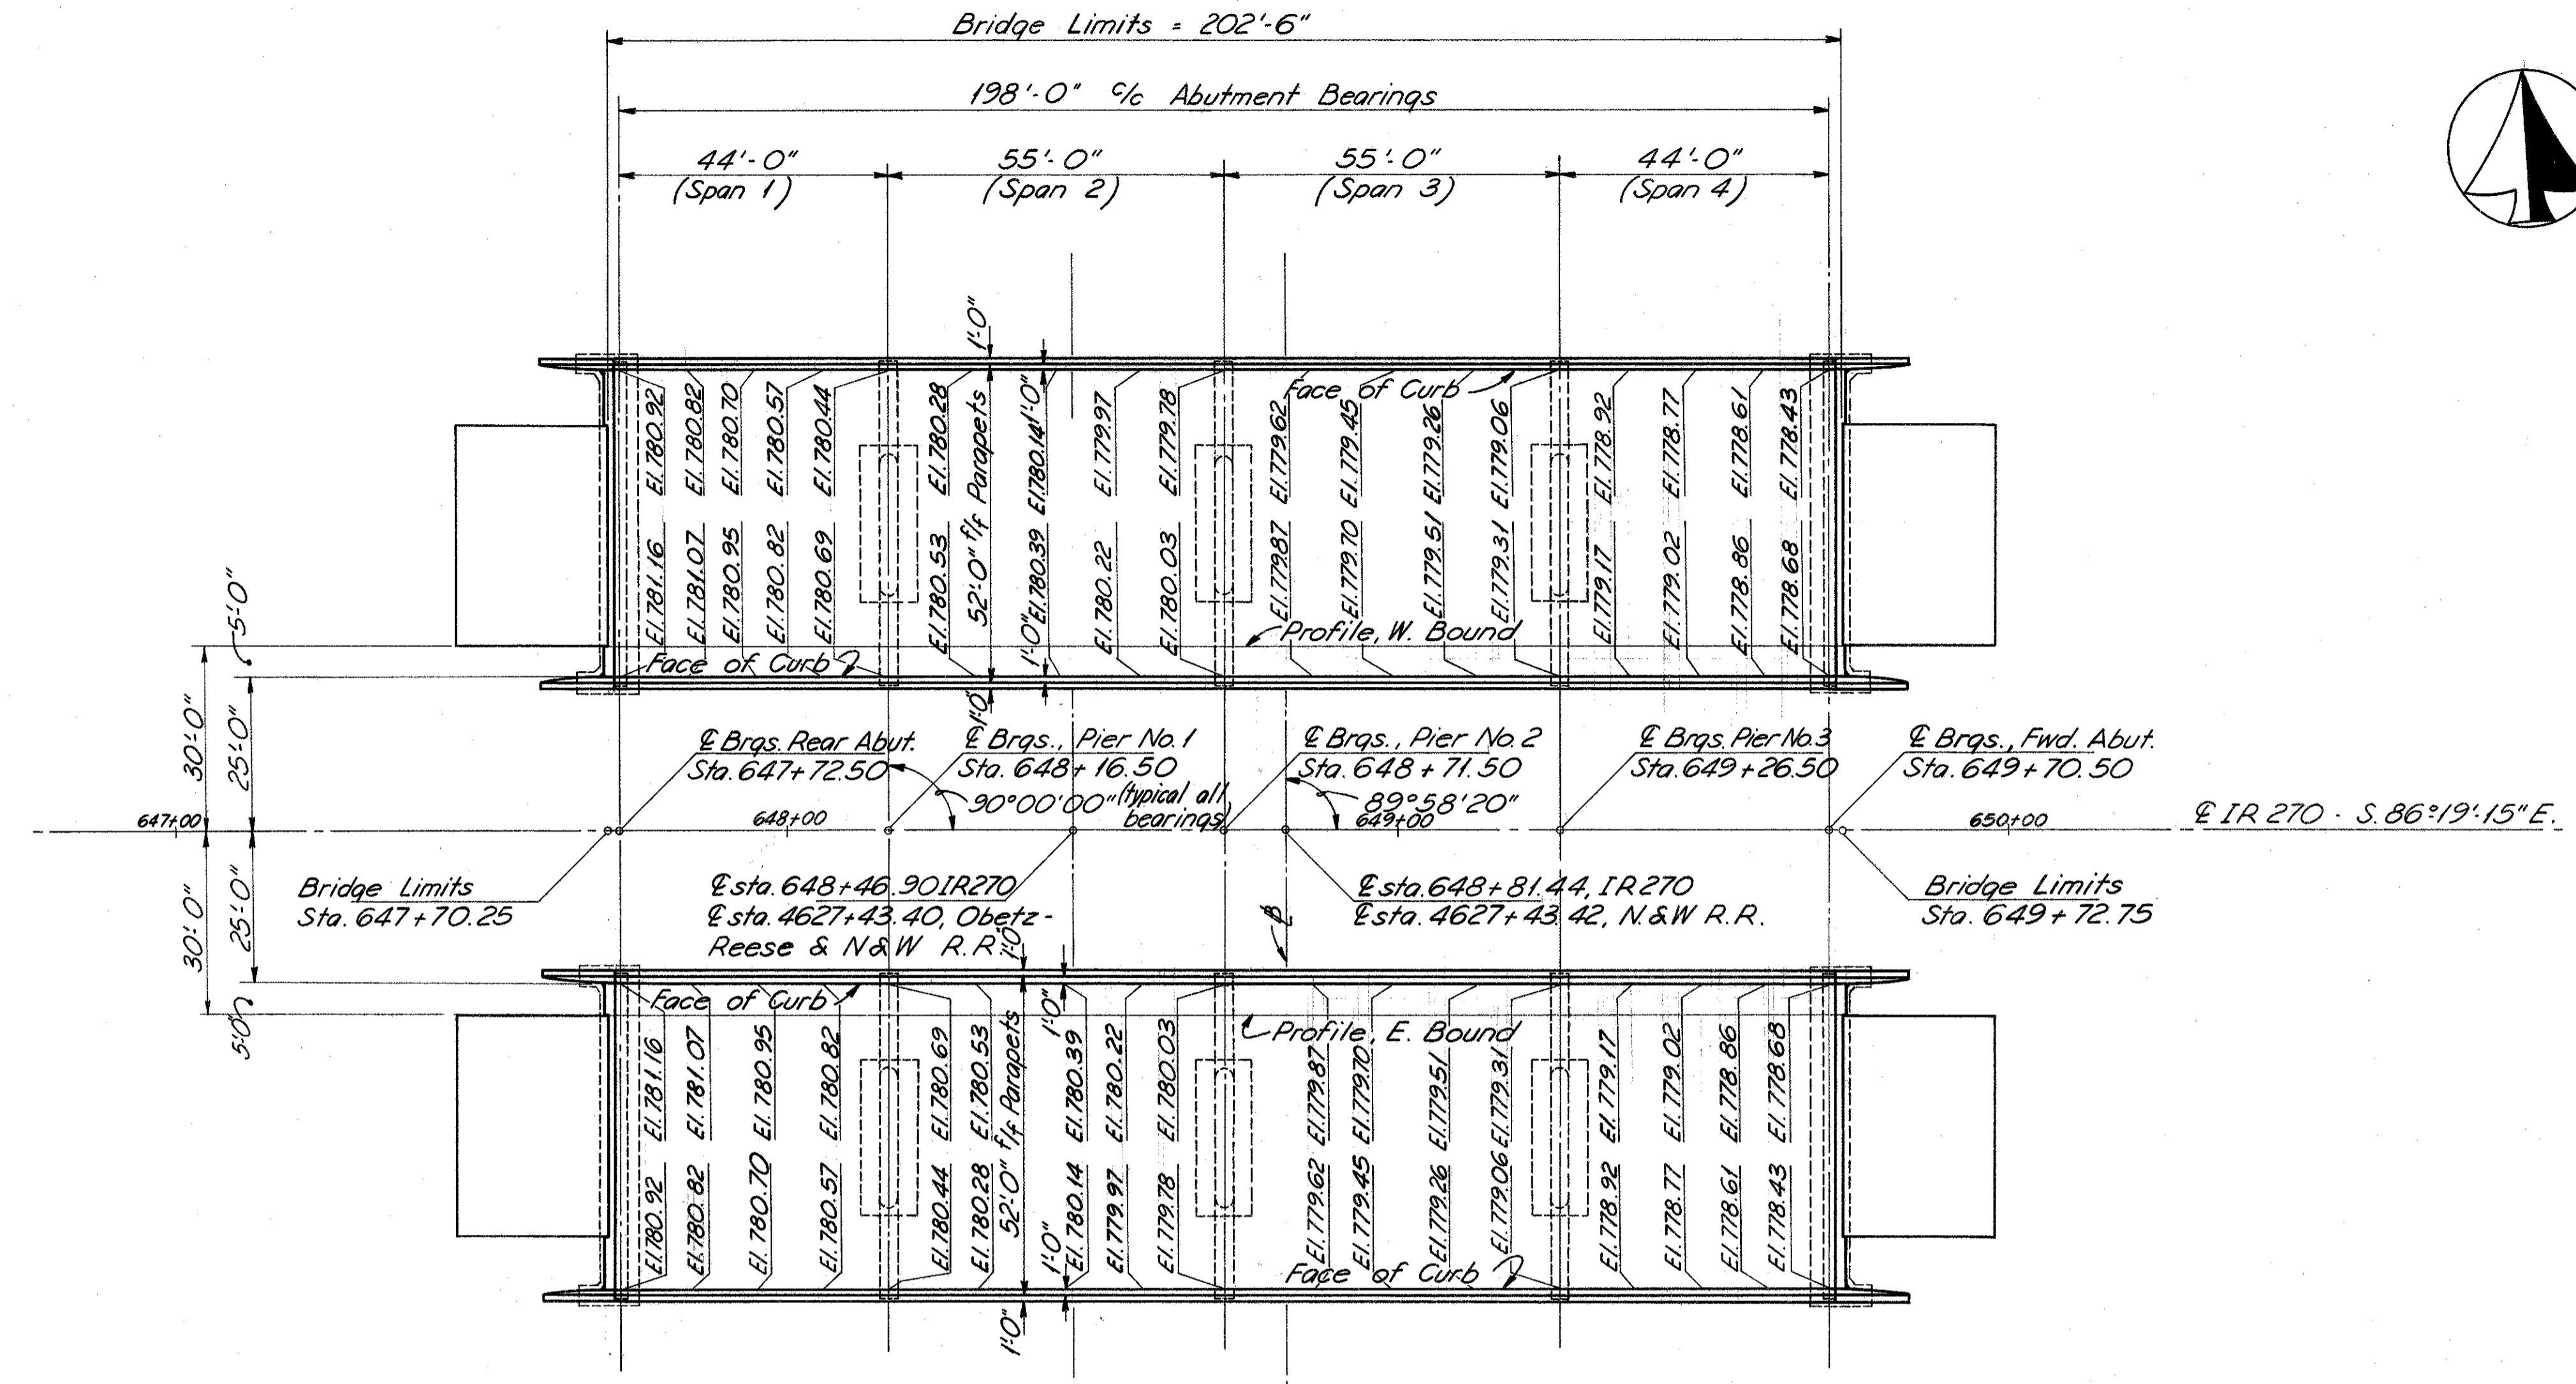 Bridge Limits = 202'-6"
198'-0" c/c Abutment Bearings
44'-0"
(Span 1)
55'-0"
(Span 2)
55'-0"
(Span 3)
44'-0"
(Span 4)
1'-0"
El.780.92
El.780.82
El.780.70
El.780.57
El.780.44
El.780.28
52'-0" f/f Parapets
1'-0"
El.780.14
El.779.97
El.779.78
El.779.62
El.779.45
El.779.26
El.779.06
El.778.92
El.778.77
El.778.61
El.778.43
Face of Curb
El.781.16
El.781.07
El.780.95
El.780.82
El.780.69
El.780.53
1'-0"
El.780.39
El.780.22
El.780.03
El.779.87
El.779.70
El.779.51
El.779.31
El.779.17
El.779.02
El.778.86
El.778.68
Profile, W. Bound
Face of Curb
1'-0"
5'-0"
30'-0"
25'-0"
℄ Brgs. Rear Abut.
Sta. 647+72.50
℄ Brgs., Pier No. 1
Sta. 648+16.50
℄ Brgs., Pier No. 2
Sta. 648+71.50
℄ Brgs. Pier No.3
Sta. 649+26.50
℄ Brgs., Fwd. Abut.
Sta. 649+70.50
90°00'00" (typical all
bearings)
89°58'20"
647+00
648+00
649+00
650+00
℄ IR 270 - S.86°19'-15" E.
Bridge Limits
Sta. 647+70.25
℄ sta. 648+46.90 IR270
℄ sta. 4627+43.40, Obetz-
Reese & N&W R.R.
℄ sta. 648+81.44, IR270
℄ sta. 4627+43.42, N.&W R.R.
Bridge Limits
Sta. 649+72.75
30'-0"
25'-0"
5'-0"
1'-0"
Face of Curb
1'-0"
Profile, E. Bound
El.781.16
El.781.07
El.780.95
El.780.82
El.780.69
El.780.53
52'-0" f/f Parapets
El.780.39
El.780.22
El.780.03
El.779.87
El.779.70
El.779.51
El.779.31
El.779.17
El.779.02
El.778.86
El.778.68
El.780.92
El.780.82
El.780.70
El.780.57
El.780.44
El.780.28
1'-0"
El.780.14
El.779.97
El.779.78
El.779.62
El.779.45
El.779.26
El.779.06
El.778.92
El.778.77
El.778.61
El.778.43
Face of Curb
1'-0"